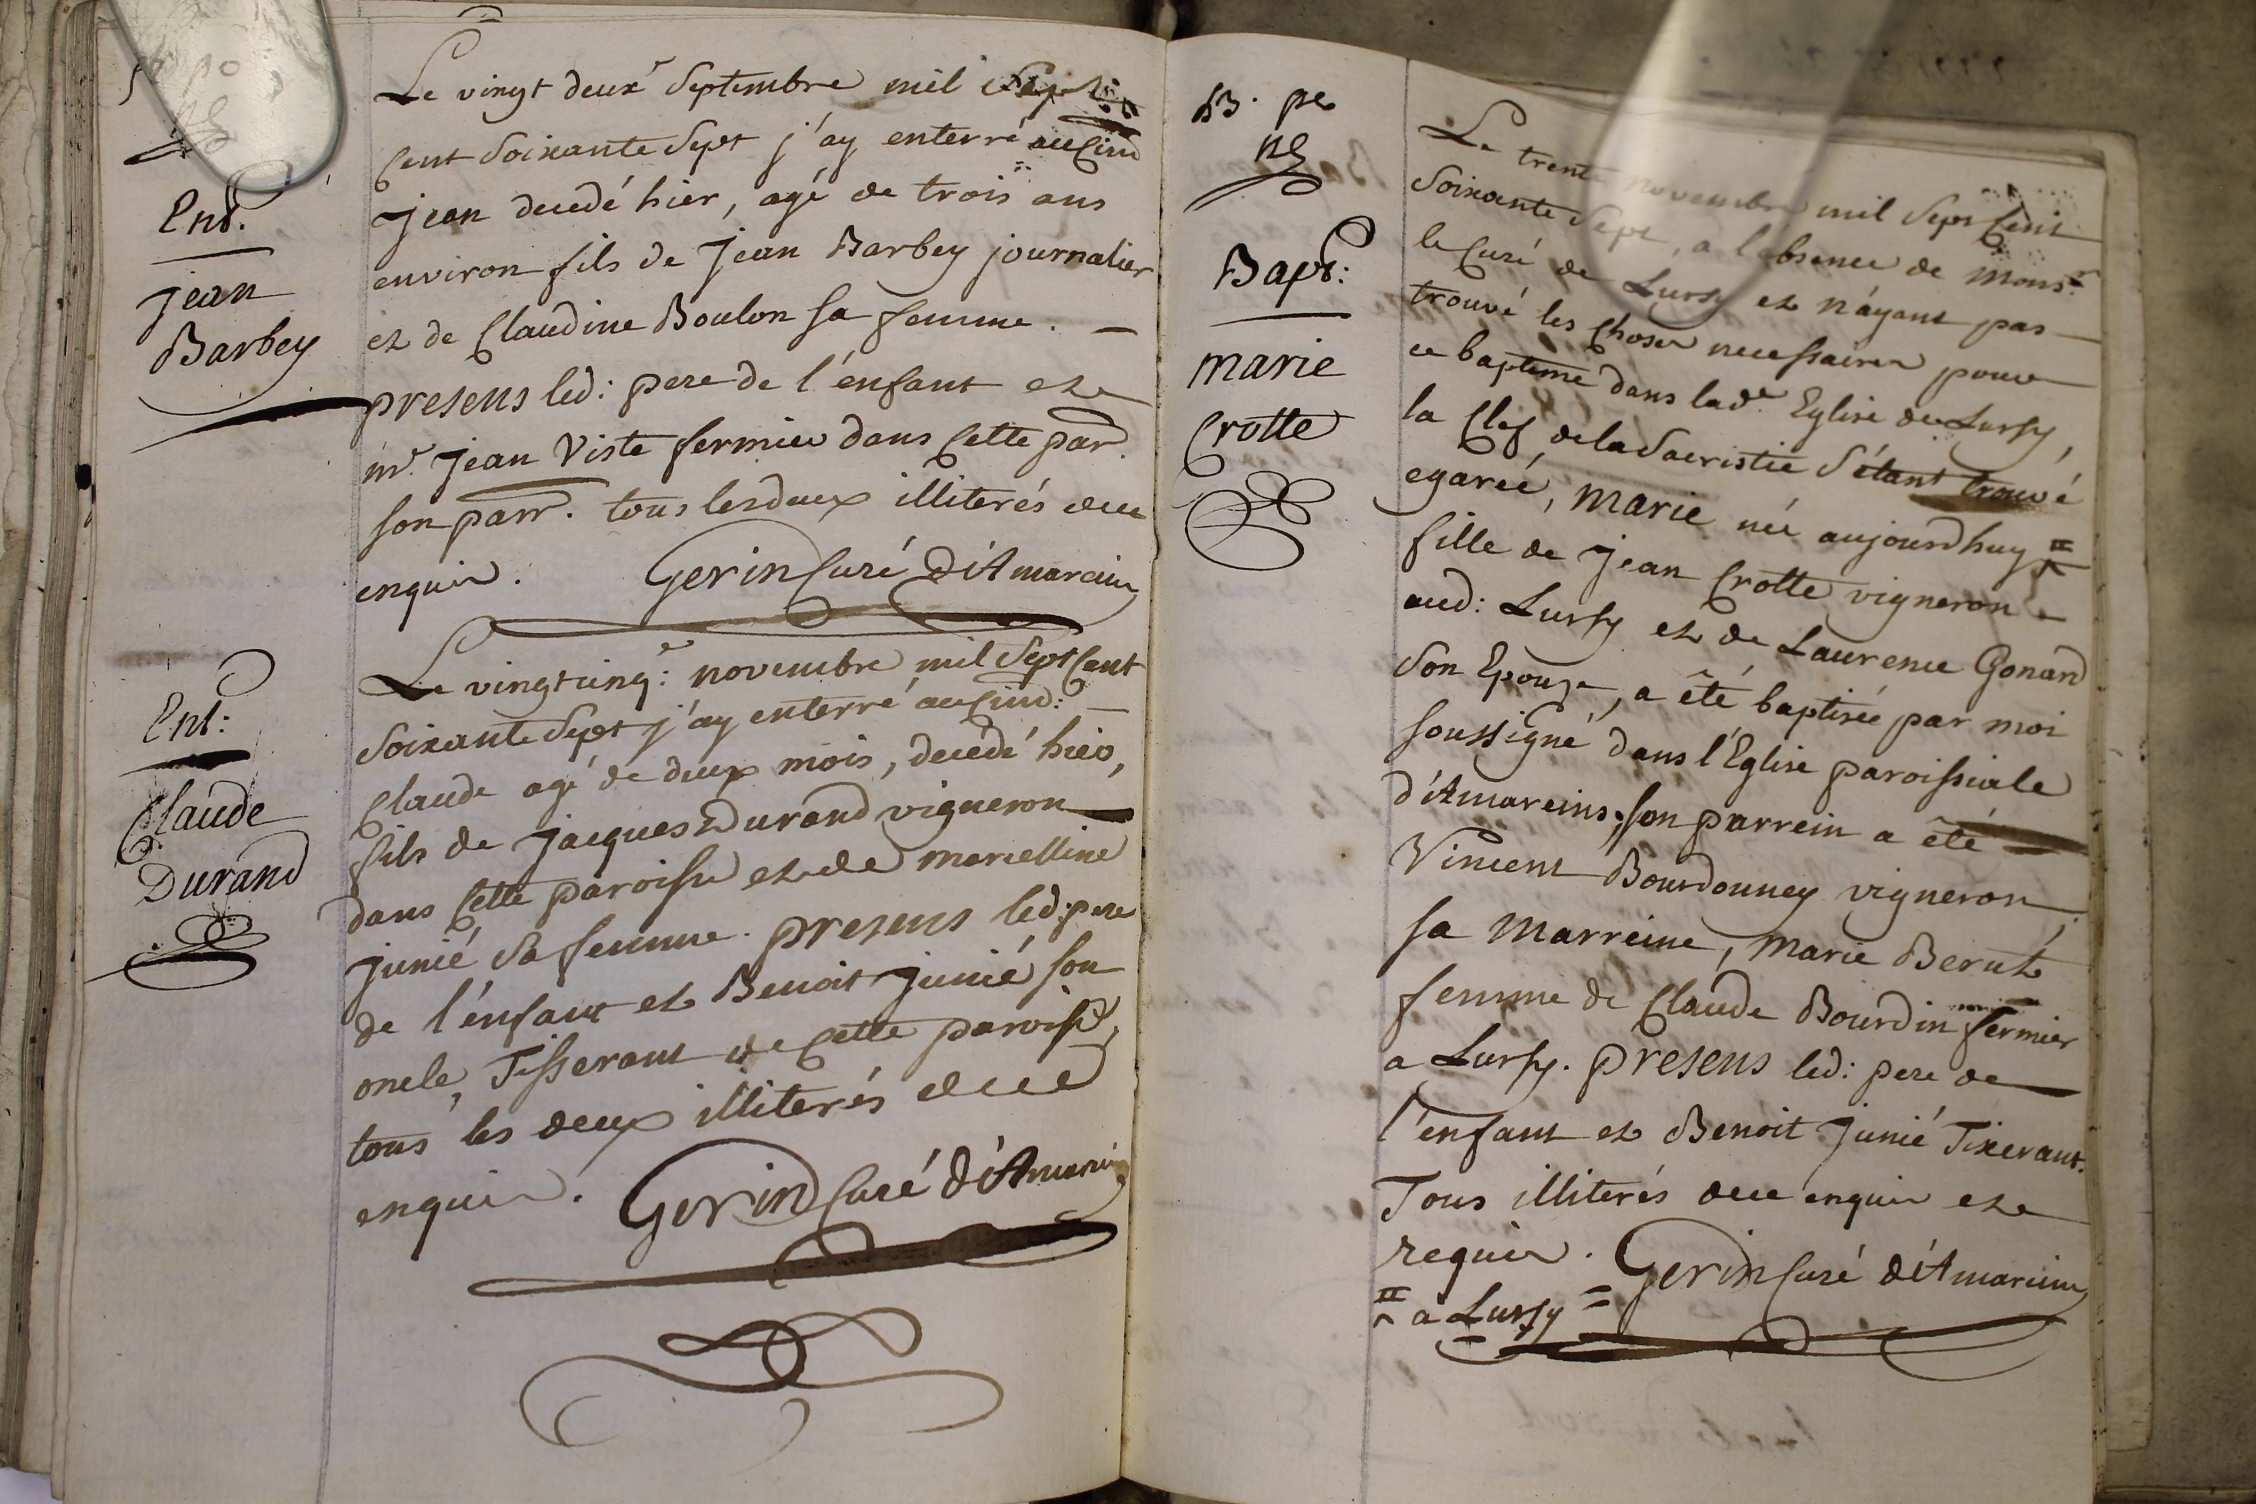 Ent.
Jean
Barbey
Le vingt deux.e Septembre mil Sept
Cent Soixante Sept j'ay enterré au Cim.
Jean decedé hier, agé de trois ans
environ fils de Jean Barbey journalier
et de Claudine Boulon sa femme. —
presens led: pere de l'énfant et
m.r Jean Viste fermier dans Cette par.
son parr. tous les deux illiterés deüe
enquis. Gerin Curé D'Amareins
Ent:
Claude
Durand
Le vingt cinq:e novembre mil Sept Cent
Soixante Sept j'ay enterré au Cim: —
Claude agé de deux mois, decedé hier,
fils de Jacques Durand vigneron
dans Cette paroisse et de marcelline
Junié Sa femme. presens led: pere
de l'énfant et Benoit Junié son
oncle, Tisserant de Cette paroisse,
tous les deux illiterés deüe
enquis. Gerin Curé D'Amareins
B. pe
Bapt:
marie
Crotte
Le trente novembre mil Sept Cent
Soixante Sept, a l'absence de Mons.r
le Curé de Lurcy et n'ayant pas
trouvé les Choses necessaires pour
ce baptême dans lad.e Eglise de Lurcy,
la Clef de la Sacristie S'étant trouvé
egareé, Marie née aujourdhuy
fille de Jean Crotte vigneron
aud: Lurcy et de Laurence Gonand
Son Epouse, a été baptisée par moi
soussigné dans l'Eglise paroissiale
d'Amareins, son parrein a été
Vincent Bourdonney vigneron,
sa Marreine, Marie Berut
femme de Claude Bourdin fermier
a Lurcy. presens led: pere de
l'enfant et Benoit Junié Tixerant.
Tous illiterés deüe enquis et
requis. Gerin Curé d'Amareins
= a Lurcy =